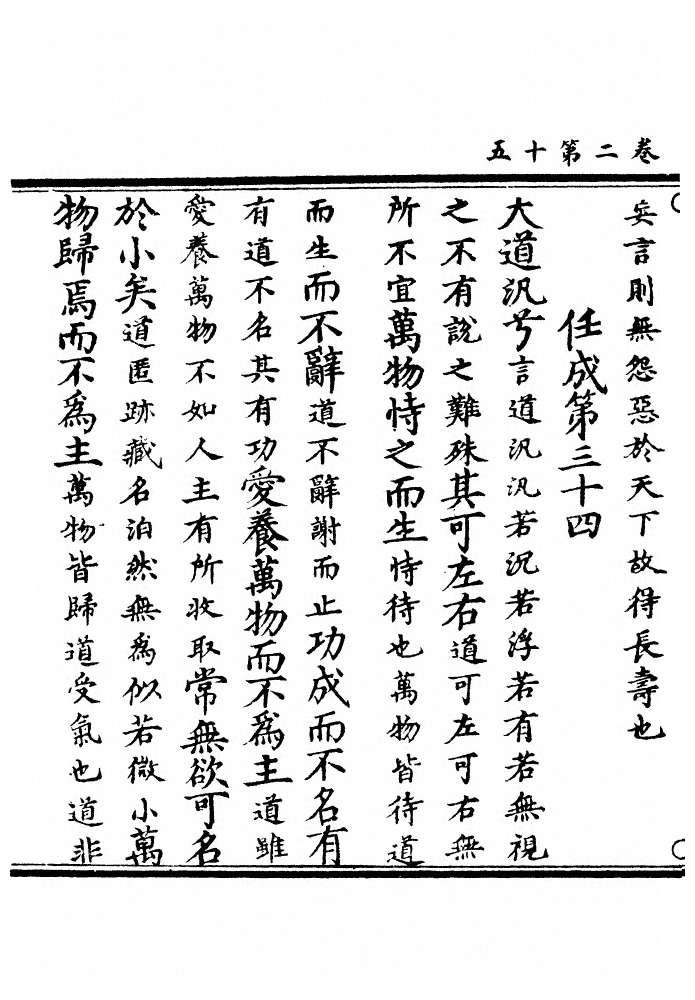 卷二第十五
妄言則無怨惡於天下故得長壽也
任成第三十四
大道汎兮言道汎汎若沉若浮若有若無視
之不有說之難殊其可左右道可左可右無
所不宜萬物恃之而生恃待也萬物皆待道
而生而不辭道不辭謝而止功成而不名有
有道不名其有功愛養萬物而不為主道雖
愛養萬物不如人主有所收取常無欲可名
於小矣道匿跡藏名泊然無為似若微小萬
物歸焉而不為主萬物皆歸道受氣也道非